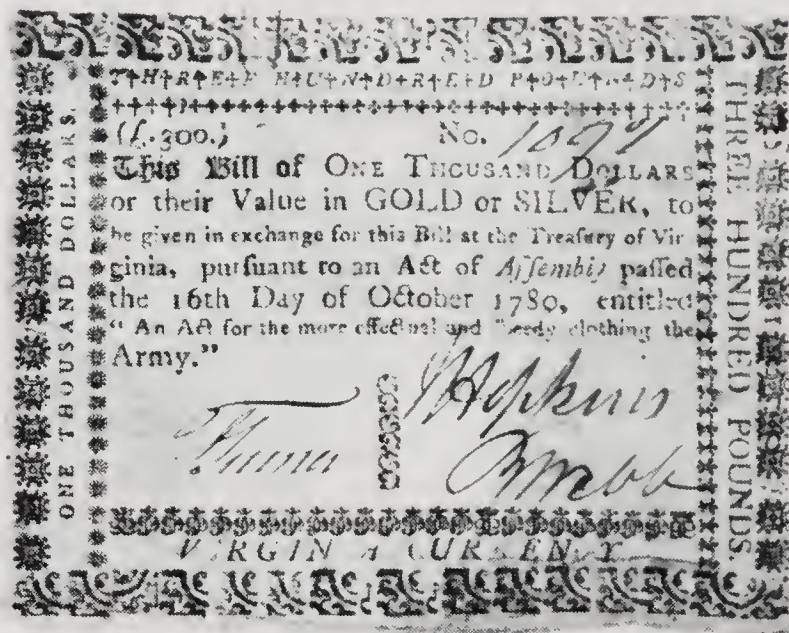 THREE HUNDRED POUNDS
(£.300.) No.
This Bill of ONE THOUSAND DOLLARS
or their Value in GOLD or SILVER, to
be given in exchange for this Bill at the Treaſury of Vir
ginia, purſuant to an Act of Aſſembly paſſed
the 16th Day of October 1780, entitled
“ An Act for the more effectual and ſpeedy clothing the
Army.”
JHopkins
BWebb
VIRGINIA CURRENCY
ONE THOUSAND DOLLARS.
THREE HUNDRED POUNDS.